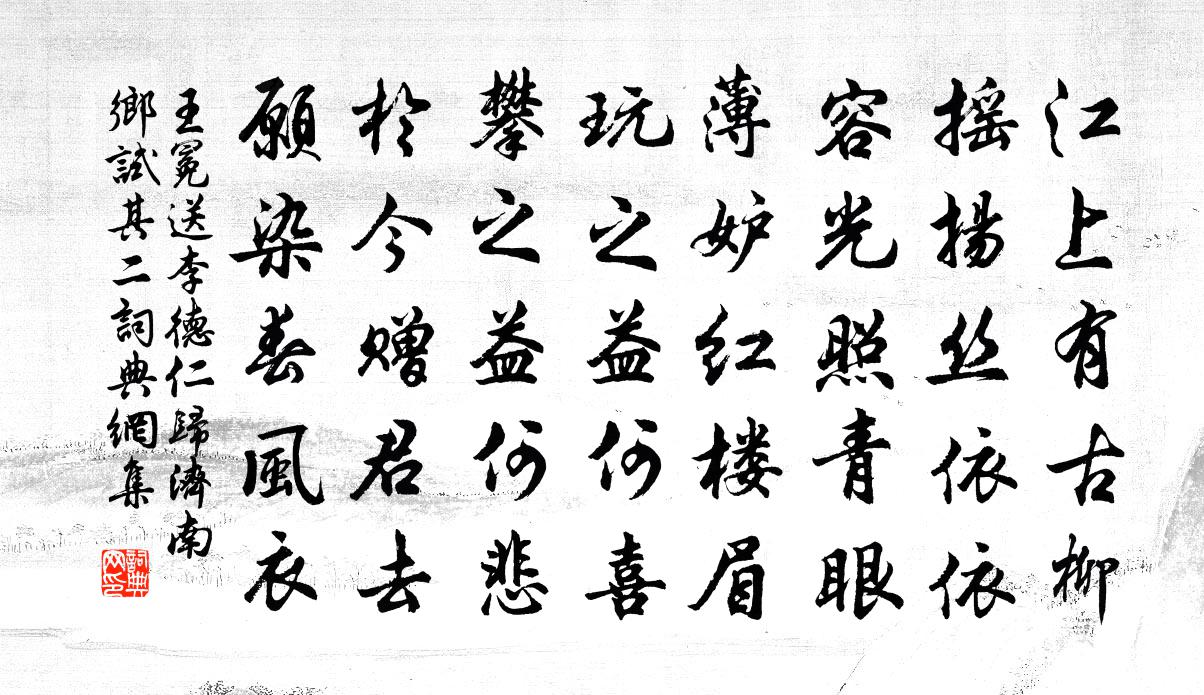 江上有古柳
摇揚丝依依
容光照青眼
薄妒红楼眉
玩之益何喜
攀之益何悲
於今赠君去
願染春風衣
王冕送李德仁歸濟南
鄉試其二詞典網集
詞典
网印